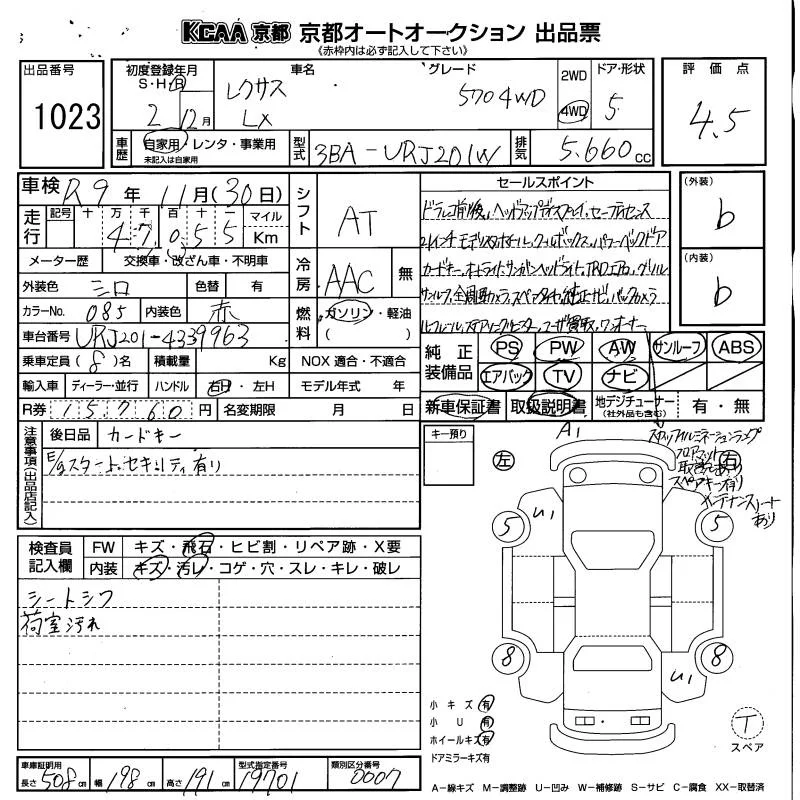 KCAA 京都 京都オートオークション 出品票
《赤枠内は必ず記入して下さい》
出品番号
1023
初度登録年月
S・H・R
2年 12月
車名
レクサス
LX
グレード
570 4WD
2WD
4WD
ドア・形状
5
評価点
4.5
車歴
自家用・レンタ・事業用
未記入は自家用
型式
3BA-URJ201W
排気
5.660cc
車検 R9年 11月(30日)
走行
記号 十 万 千 百 十 一 マイル
47,055 Km
メーター歴 交換車・改ざん車・不明車
外装色 シロ 色替 有
カラーNo. 085 内装色 赤
車台番号 URJ201-4339963
乗車定員(8)名 積載量 Kg NOX 適合・不適合
輸入車 ディーラー・並行 ハンドル 右H・左H モデル年式 年
R券 15760円 名変期限 月 日
シフト AT
冷房 AAC 無
燃料 ガソリン・軽油
( )
セールスポイント
ドラレコ前後、ヘッドアップディスプレイ、セーフティセンス
21インチモデリスタホイール、クールボックス、パワーバックドア
カードキー、オートライト、サンカンヘッドライト、TRDエアロ、グリル
サンルーフ、全周囲カメラ、スペアタイヤ、純正ナビ、バックカメラ
ルーフレール、ステアリングヒーター、ユーザー買取、ワンオーナー
(外装)
b
(内装)
b
純正装備品
PS PW AW サンルーフ ABS
エアバック TV ナビ
新車保証書 取扱説明書 地デジチューナー(社外品も含む) 有・無
注意事項(出品店記入)
後日品 カードキー
E/gスタート、セキュリティ有り
キー預り
A1
左
右
スカッフイルミネーションランプ
フロアマット
取説あり
スペアキー有り
メンテナンスノート
あり
検査員記入欄
FW キズ・飛石・ヒビ割・リペア跡・X要
内装 キズ・汚レ・コゲ・穴・スレ・キレ・破レ
シートシワ
荷室汚れ
5 U1 5
8 U1 8
小キズ 有
小U 有
ホイールキズ 有
ドアミラーキズ有
T
スペア
車庫証明用
長さ 508cm 幅 198cm 高さ 191cm
型式指定番号
19701
類別区分番号
0007
A-線キズ M-調整跡 U-凹み W-補修跡 S-サビ C-腐食 XX-取替済